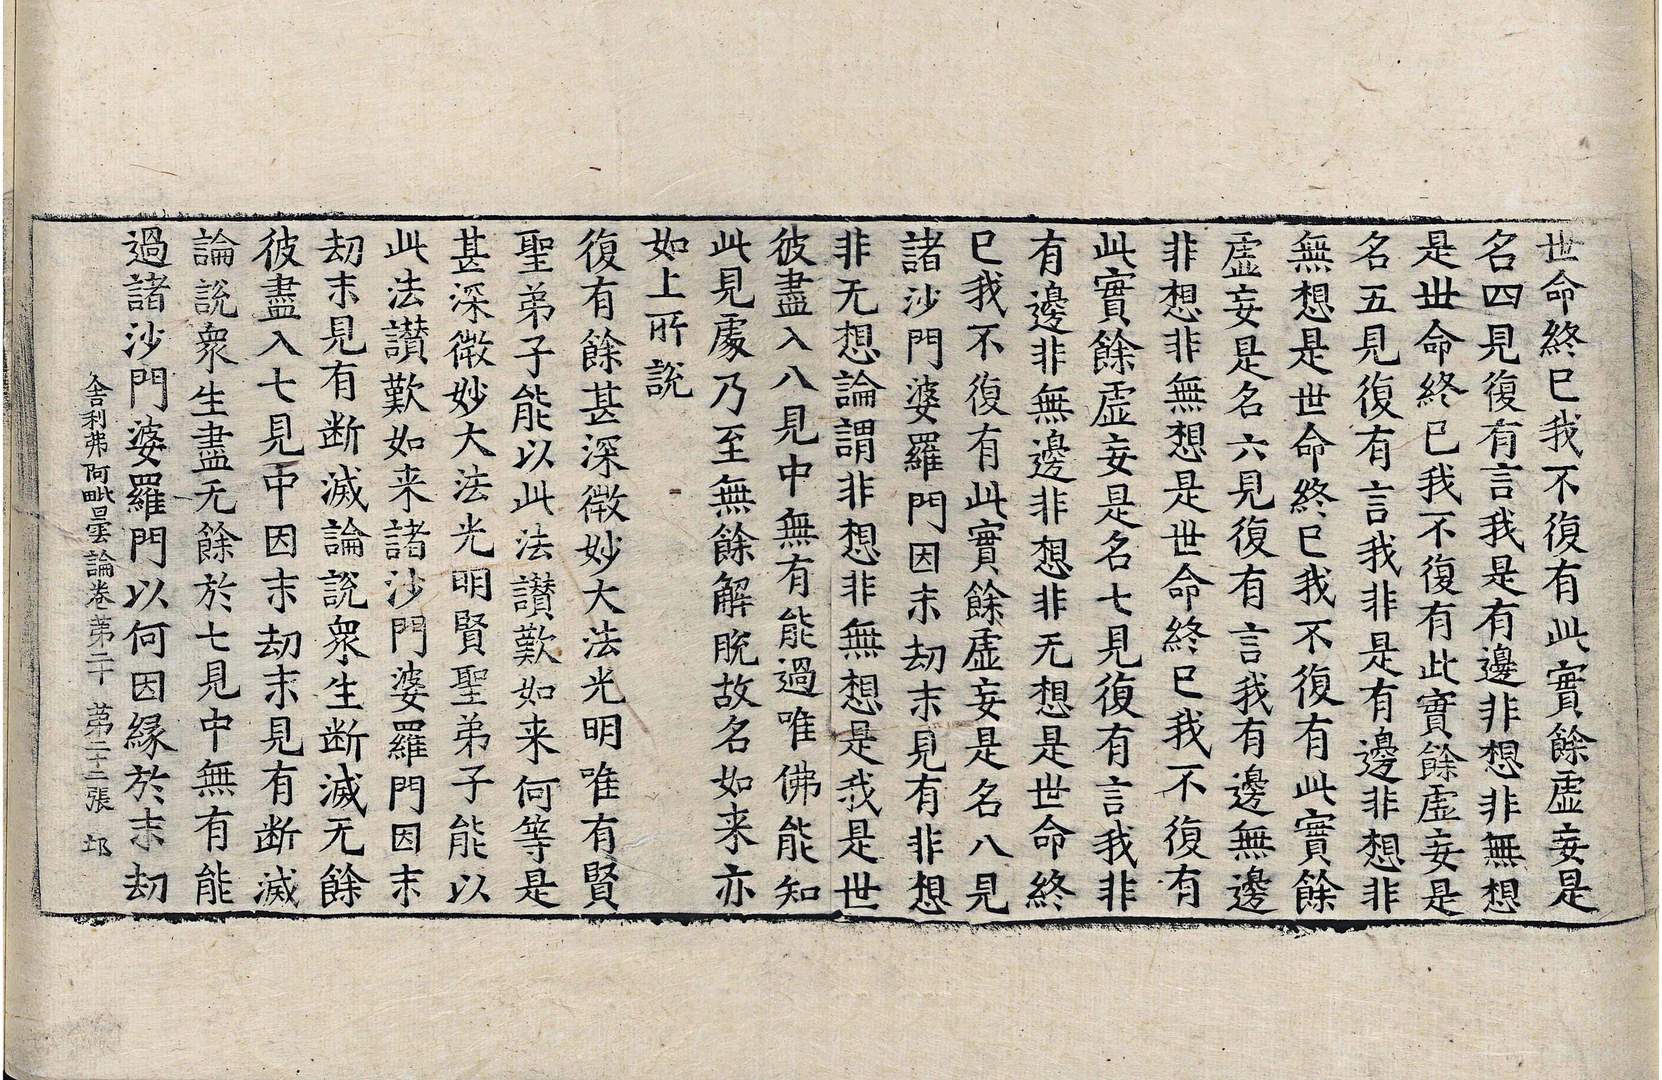 世命終已我不復有此實餘虛妄是
名四見復有言我是有邊非想非無想
是世命終已我不復有此實餘虛妄是
名五見復有言我非是有邊非想非
無想是世命終已我不復有此實餘
虛妄是名六見復有言我有邊無邊
非想非無想是世命終已我不復有
此實餘虛妄是名七見復有言我非
有邊非無邊非想非无想是世命終
已我不復有此實餘虛妄是名八見
諸沙門婆羅門因末劫末見有非想
非无想論謂非想非無想是我是世
彼盡入八見中無有能過唯佛能知
此見處乃至無餘解脫故名如来亦
如上所說
復有餘甚深微妙大法光明唯有賢
聖弟子能以此法讃歎如来何等是
甚深微妙大法光明賢聖弟子能以
此法讃歎如来諸沙門婆羅門因末
劫末見有断滅論說衆生断滅无餘
彼盡入七見中因末劫末見有断滅
論說衆生盡无餘於七見中無有能
過諸沙門婆羅門以何因緣於末劫
舎利弗阿毗曇論卷第二十 第二十二張 𨚗